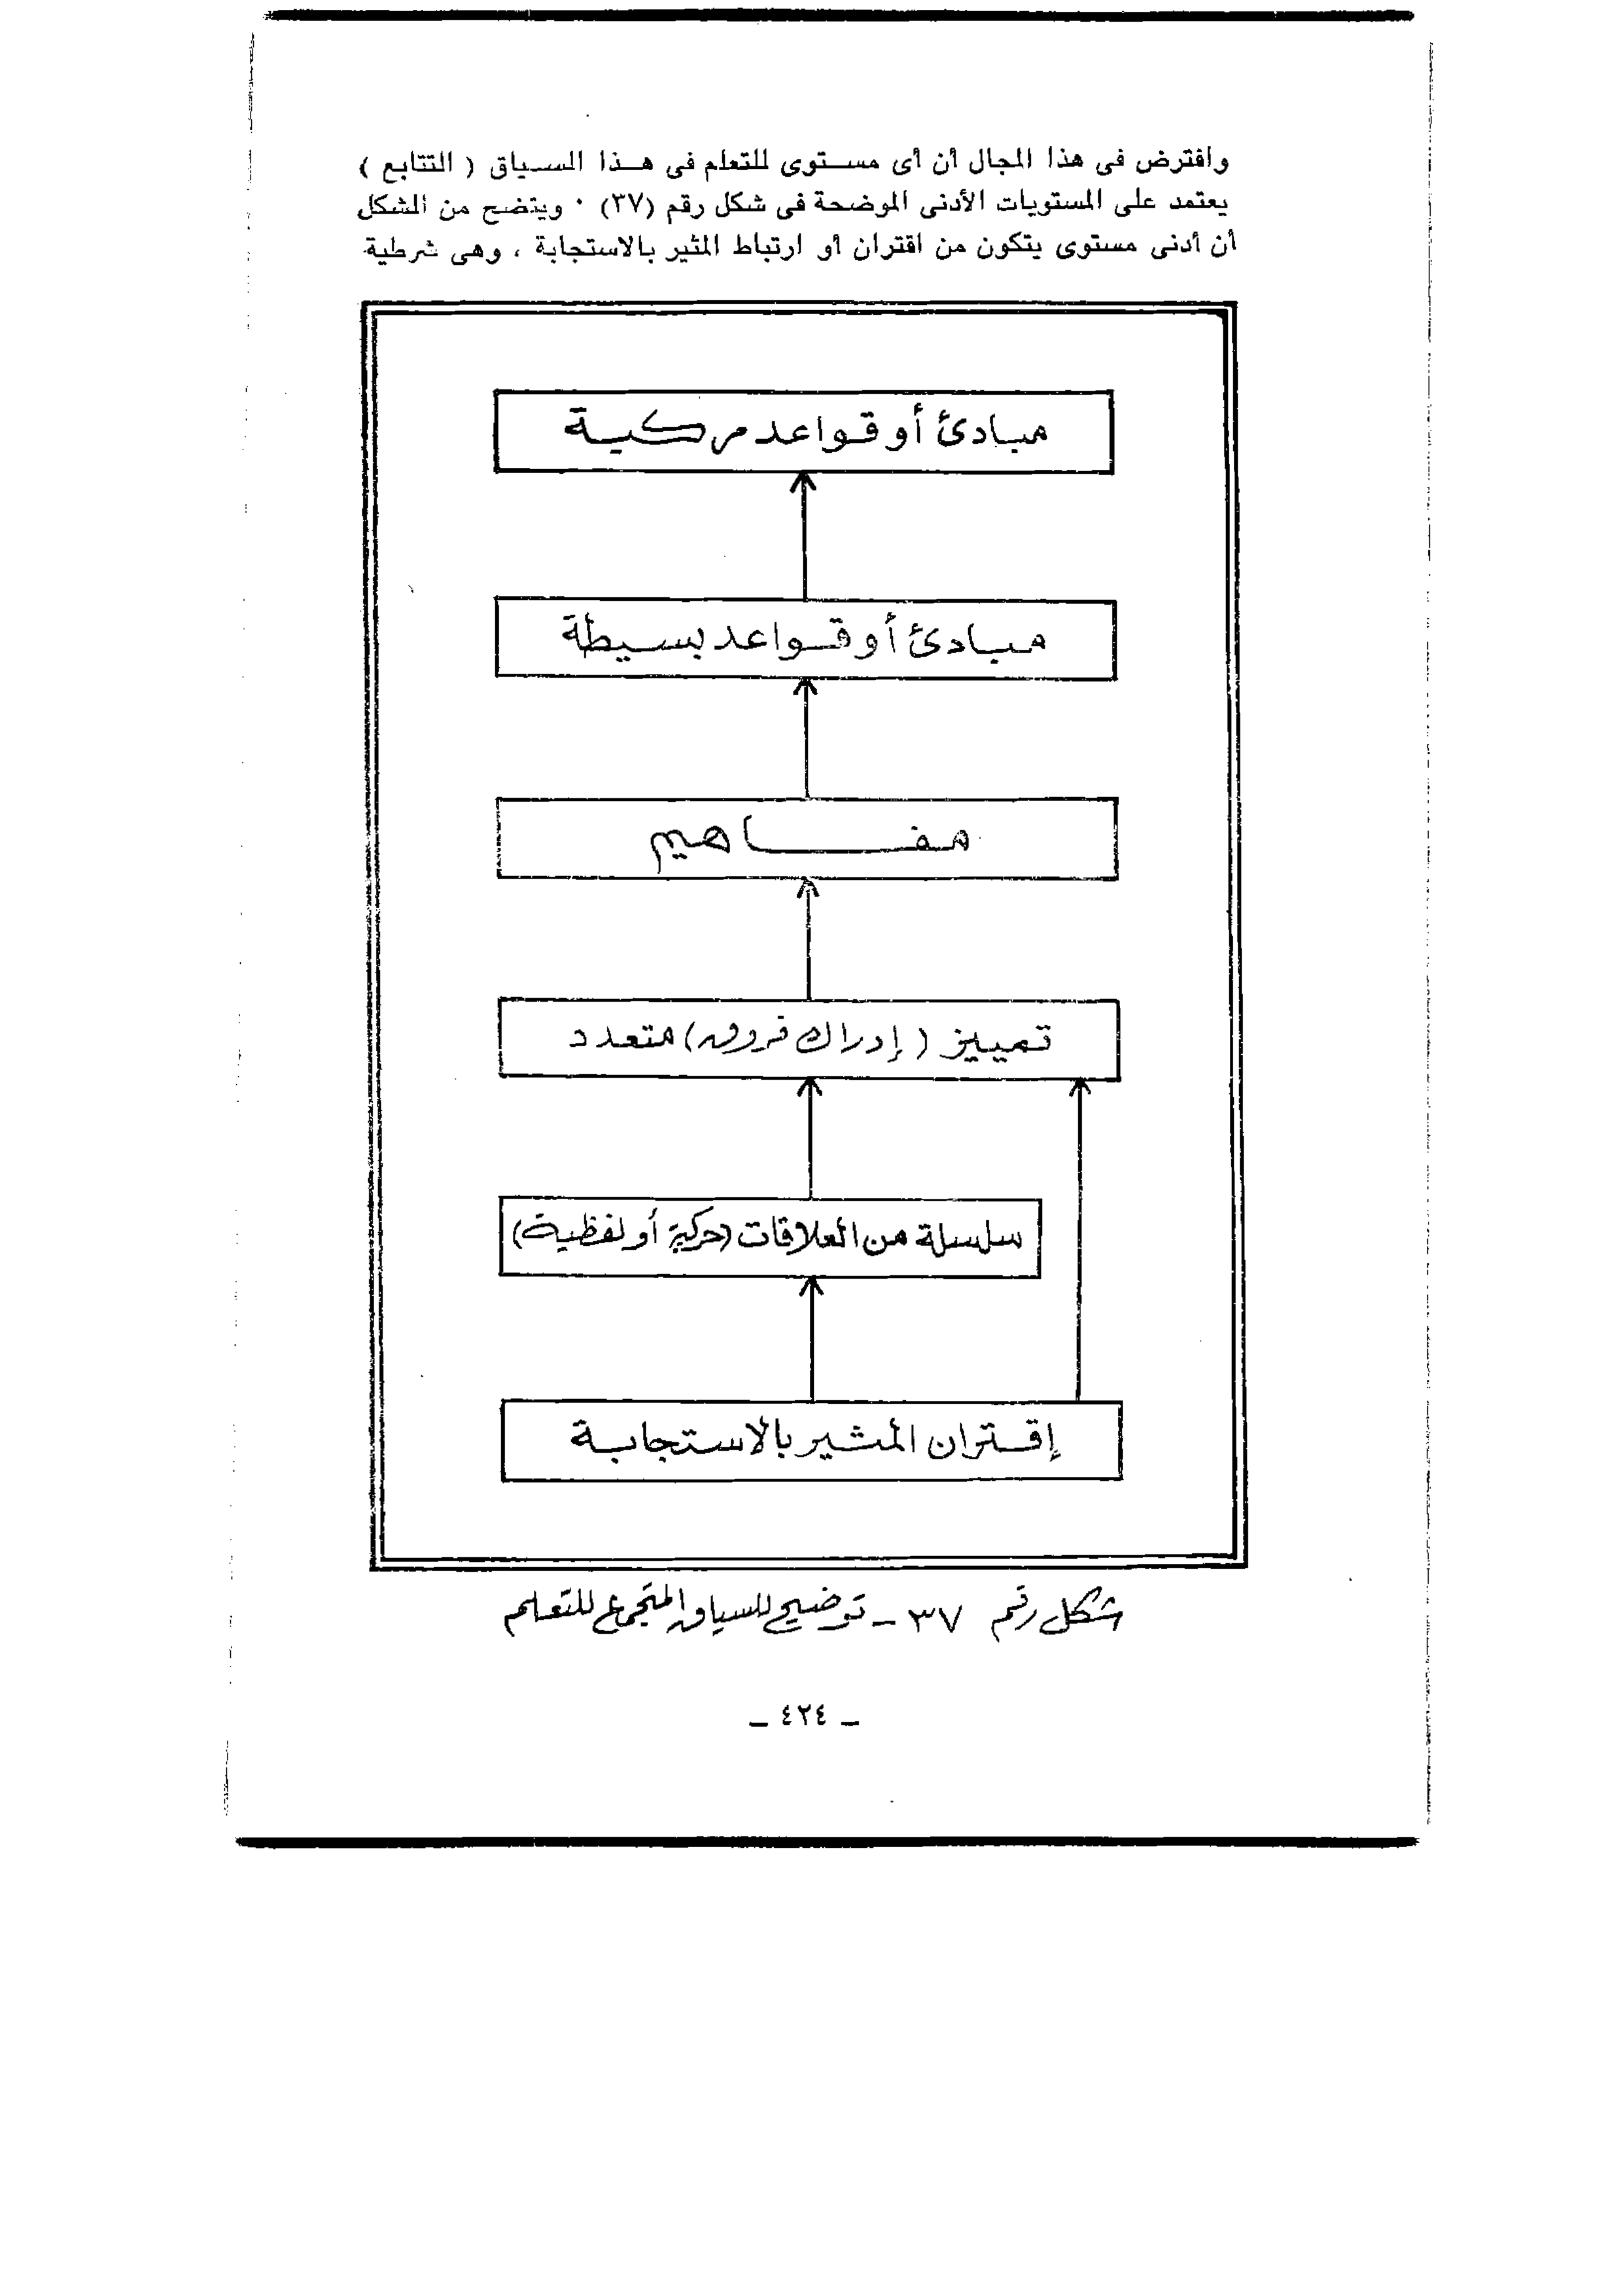 وافترض فى هذا المجال أن أى مستوى للتعلم فى هذا السياق ( التتابع )
يعتمد على المستويات الأدنى الموضحة فى شكل رقم (٣٧) ٠ ويتضح من الشكل
أن أدنى مستوى يتكون من اقتران أو ارتباط المثير بالاستجابة ، وهى شرطية
مبادئ أو قواعد مركبة
مبادئ أو قواعد بسيطة
مفاهيم
تمييز ( إدراك فروق ) متعدد
سلسلة من العلاقات (حركية أو لفظية)
إقتران المثير بالاستجابة
شكل رقم ٣٧ - توضيح للسياق المتجمع للتعلم
- ٤٢٤ -